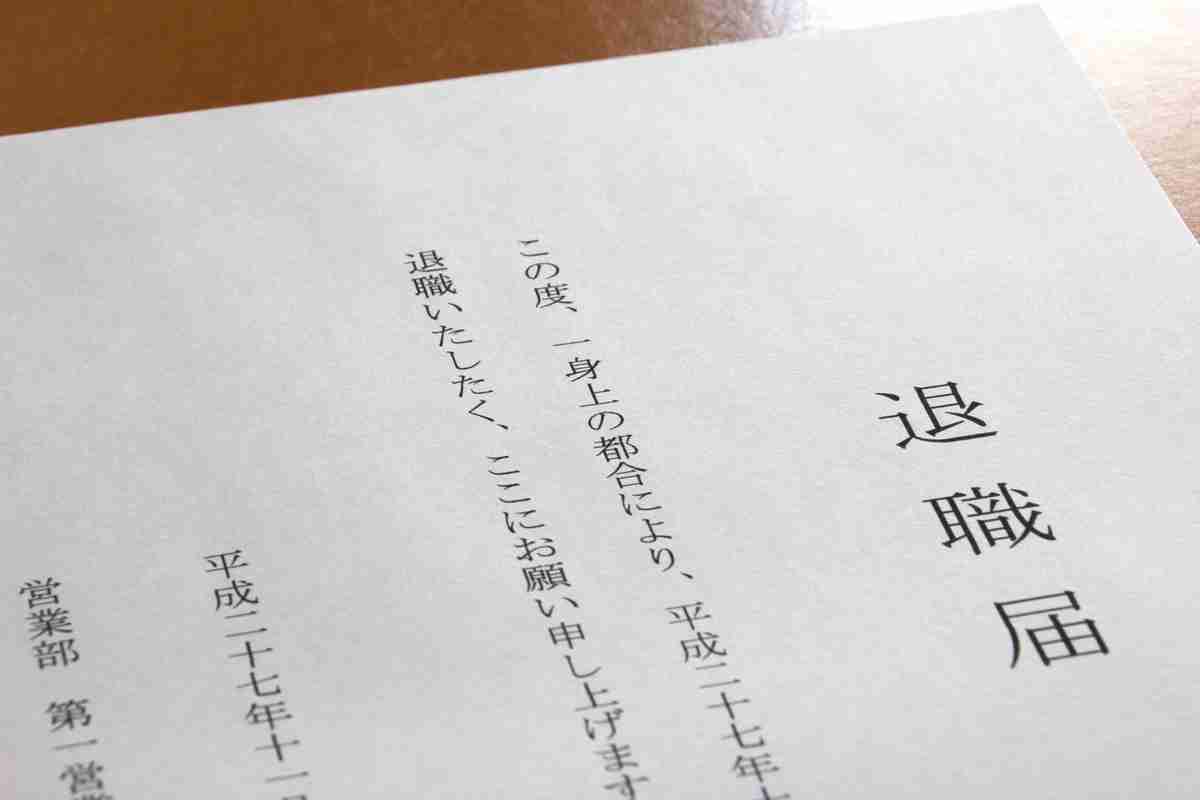 退職届
この度、一身上の都合により、平成二十七年十
退職いたしたく、ここにお願い申し上げます
平成二十七年十一月
営業部 第一営業